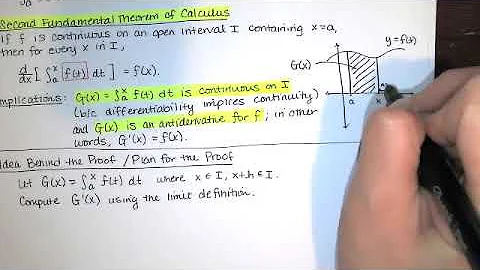 Second Fundamental Theorem of Calculus
If f is continuous on an open interval I containing x=a,
then for every x in I,
d/dx [ ∫ₐˣ f(t) dt ] = f(x).
Implications: G(x) = ∫ₐˣ f(t) dt is continuous on I
(b/c differentiability implies continuity)
and G(x) is an antiderivative for f; in other
words, G'(x) = f(x).
Idea Behind the Proof / Plan for the Proof
Let G(x) = ∫ₐˣ f(t) dt where x ∈ I, x+h ∈ I.
Compute G'(x) using the limit definition.
y=f(t)
G(x)
a
x